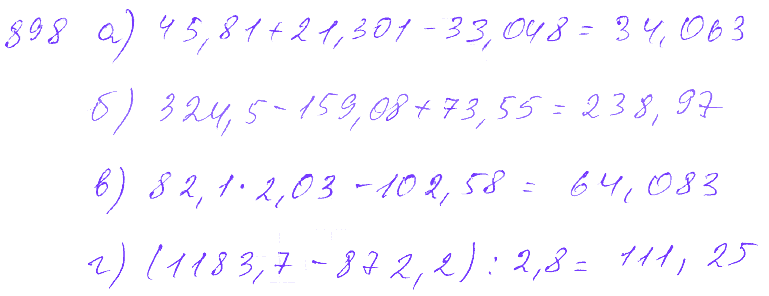 898 а) 45,81+21,301-33,048=34,063
б) 324,5-159,08+73,55=238,97
в) 82,1·2,03-102,58= 64,083
г) (1183,7-872,2):2,8= 111,25